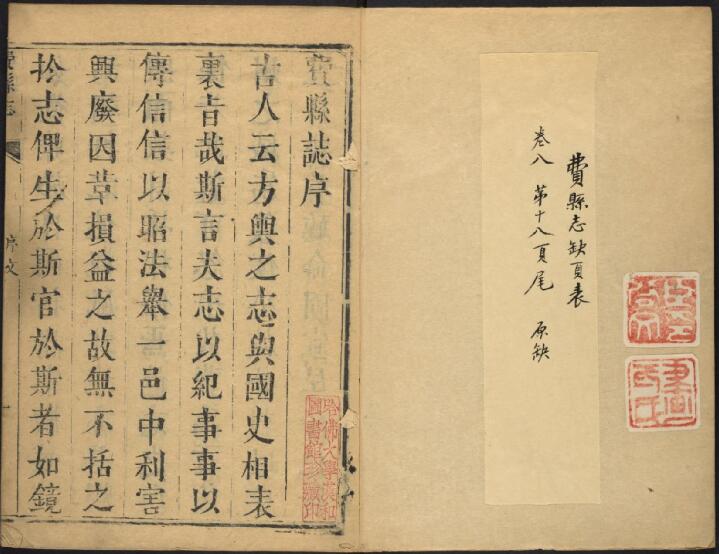 費縣志缺頁表
卷八 第十八頁尾 原缺
費縣誌序
古人云方輿之志與國史相表
裏旨哉斯言夫志以紀事事以
傳信信以昭法舉一邑中利害
興廢因革損益之故無不括之
扵志俾生於斯官於斯者如鏡
費縣志
序文
哈佛大學漢和
圖書館珍藏印